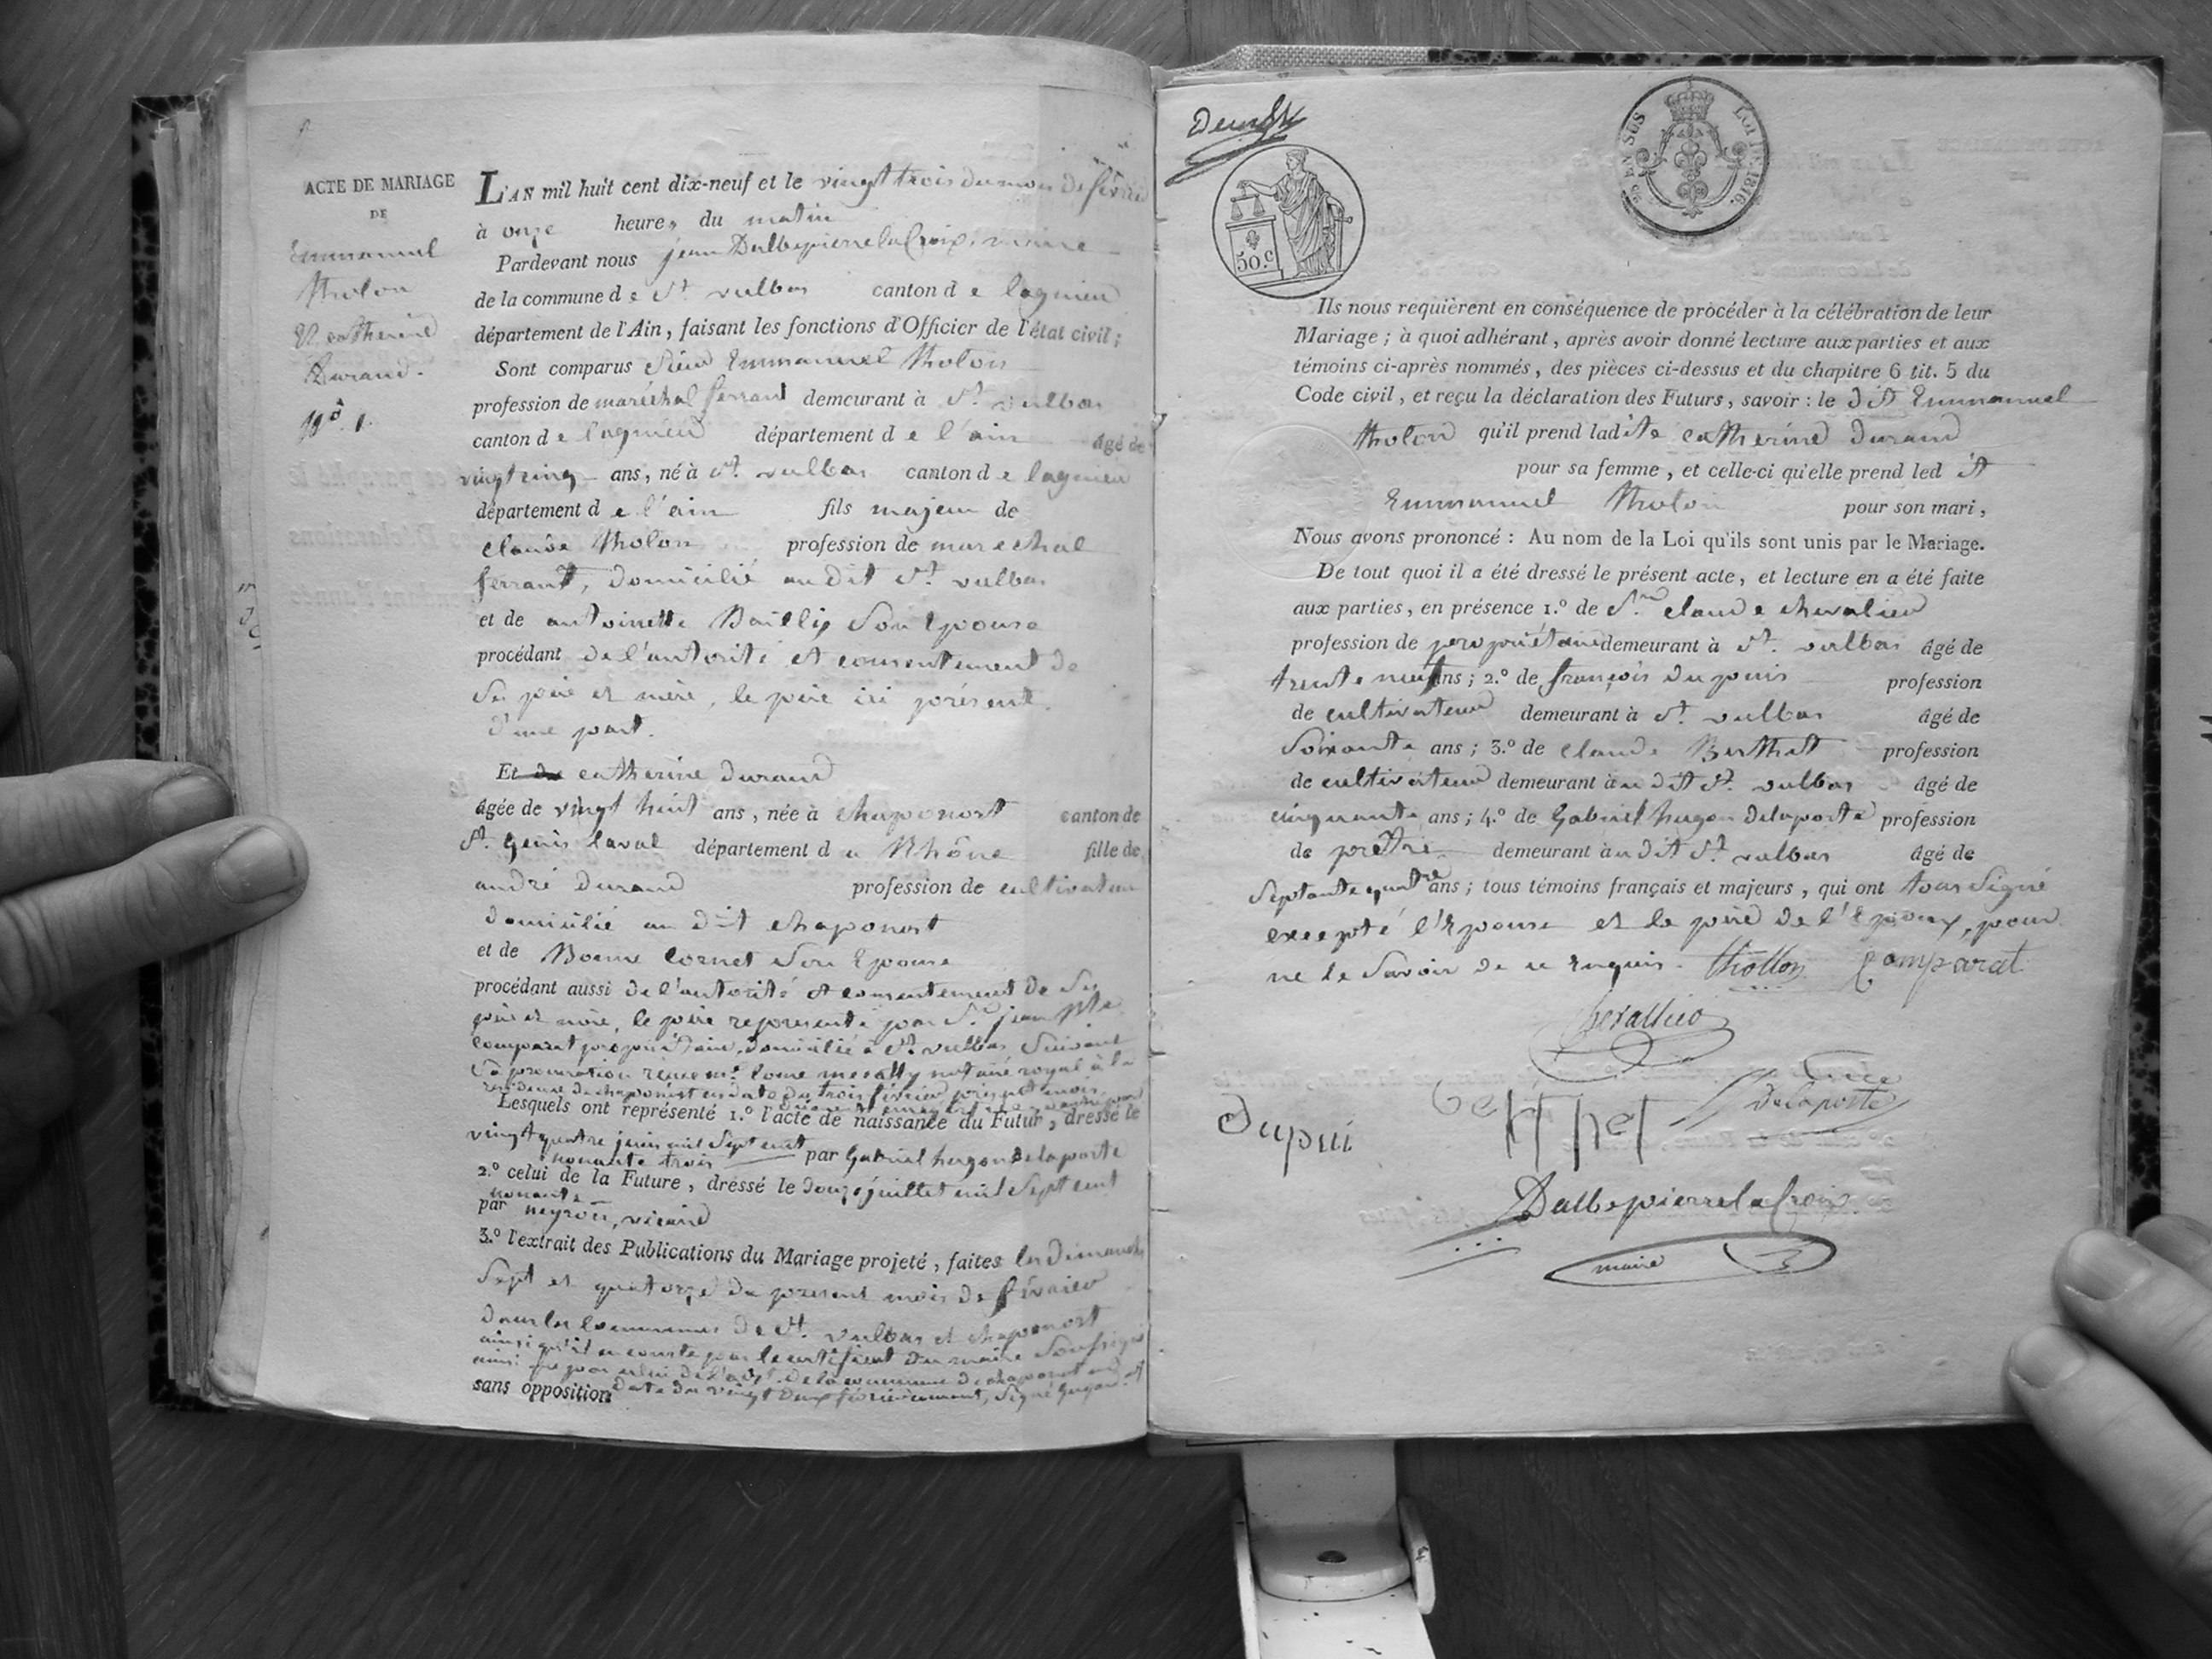 ACTE DE MARIAGE
DE
Emmanuel
tholon
Et catherine
Durand.
N.o 1.
L'AN mil huit cent dix-neuf et le vingt trois du mois de février
à onze heures du matin
Pardevant nous jean Dalbepierrelacroix, maire
de la commune de St. vulbas canton de lagnieu
département de l'Ain, faisant les fonctions d'Officier de l'état civil;
Sont comparus Sieur Emmanuel tholon
profession de maréchal ferrant demeurant à St. vulbas
canton de lagnieu département de l'ain âgé de
vingt cinq ans, né à St. vulbas canton de lagnieu
département de l'ain fils majeur de
claude tholon profession de marechal
ferrant, domicilié au dit St. vulbas
et de antoinette Bailly Son Epouse
procédant de l'autorité et consentement de
Ses père et mère, le père ici présent.
d'une part.
Et catherine durand
âgée de vingt huit ans, née à chaponost canton de
St. genis laval département du Rhône fille de
andré durand profession de cultivateur
domicilié au dit chaponost
et de Bonne Cornet Son Epouse
procédant aussi de l'autorité et consentement de Ses
père et mère, le père représenté par Sr. jean Bte
comparat propriétaire, domicilié à St. vulbas Suivant
Sa procuration notaire royal à la
résidence de chaponost en date du trois février présent mois
Lesquels ont représenté 1.o l'acte de naissance du Futur, dressé le
vingt quatre juin mil Sept cent
nonante trois par Gabriel hugon delaporte
2.o celui de la Future, dressé le douze juillet mil Sept cent
nonante
par neyron, vicaire
3.o l'extrait des Publications du Mariage projeté, faites les dimanches
Sept et quatorze du present mois de février
dans les Communes de St. vulbas et chaponost
ainsi qu'il en conste par le certificat du maire Soussigné
ainsi que par celui de l'adjt. de la commune de chaponost en
sans opposition date du vingt deux février courant, Signé
50.c
EN SUS
LOI DE 1816.
Ils nous requièrent en conséquence de procéder à la célébration de leur
Mariage; à quoi adhérant, après avoir donné lecture aux parties et aux
témoins ci-après nommés, des pièces ci-dessus et du chapitre 6 tit. 5 du
Code civil, et reçu la déclaration des Futurs, savoir: le dit Emmanuel
tholon qu'il prend ladite catherine durand
pour sa femme, et celle-ci qu'elle prend ledit
Emmanuel tholon pour son mari,
Nous avons prononcé: Au nom de la Loi qu'ils sont unis par le Mariage.
De tout quoi il a été dressé le présent acte, et lecture en a été faite
aux parties, en présence 1.o de Sr. claude chevalier
profession de propriétaire demeurant à St. vulbas âgé de
trente neuf ans; 2.o de françois dupuis profession
de cultivateur demeurant à St. vulbas âgé de
Soixante ans; 3.o de claude Berthet profession
de cultivateur demeurant àu dit St. vulbas âgé de
cinquante ans; 4.o de Gabriel hugon delaporte profession
de prêtre demeurant àu dit St. vulbas âgé de
Septante quatre ans; tous témoins français et majeurs, qui ont tous Signé
excepté l'Epouse et le père de l'Epoux, pour
ne le Savoir de ce Enquis. thollon Comparat
Chevallier
Dupui Delaporte
Dalbepierrelacroix
maire